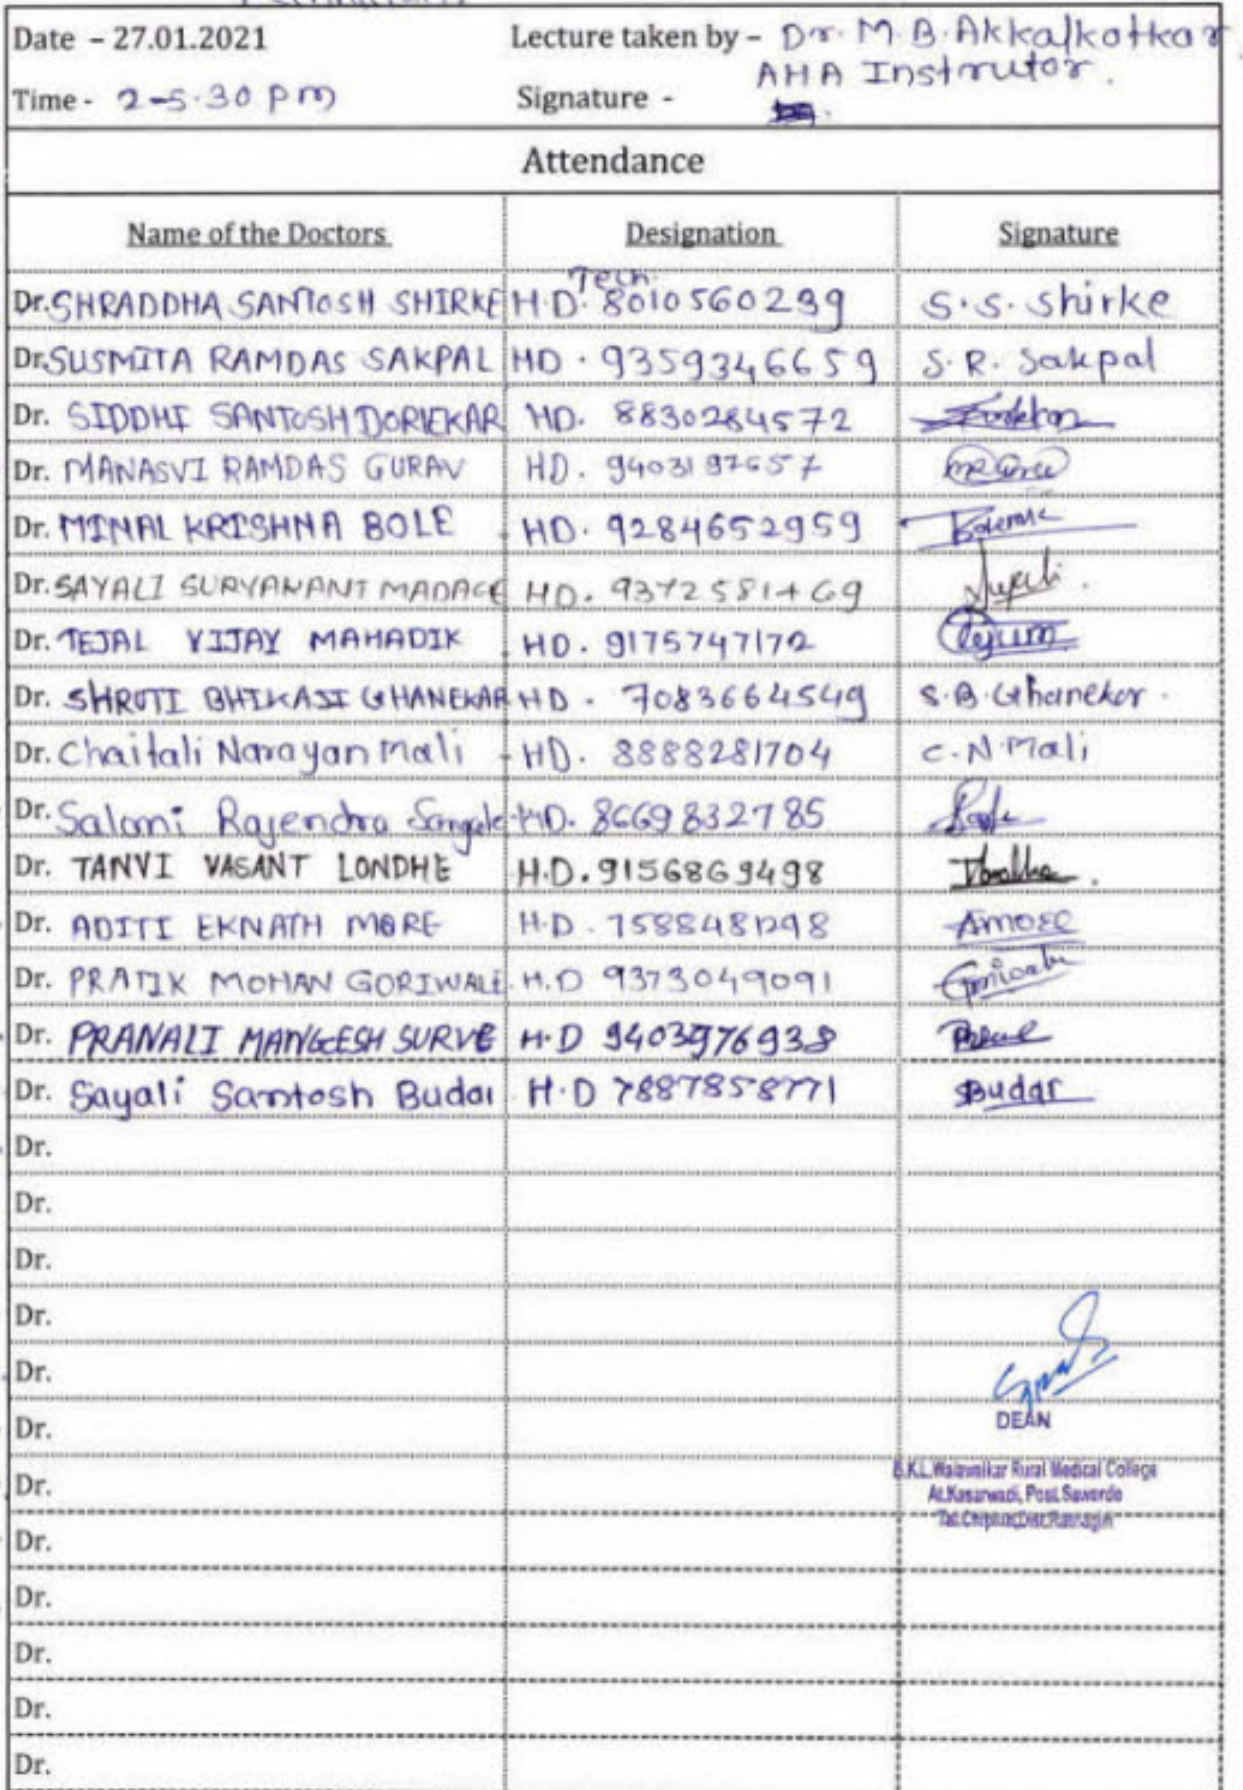 Date - 27.01.2021 Lecture taken by - Dr. M.B. Akkalkotkar
AHA Instrutor.
Time - 2-5.30 pm Signature -
Attendance
Name of the Doctors Designation Signature
Tech.
Dr. SHRADDHA SANTOSH SHIRKE H.D. 8010560239 S.S. Shirke
Dr. SUSMITA RAMDAS SAKPAL HD. 9359346659 S.R. Sakpal
Dr. SIDDHI SANTOSH DORLEKAR HD. 8830284572
Dr. MANASVI RAMDAS GURAV HD. 9403197657
Dr. MINAL KRISHNA BOLE HD. 9284652959
Dr. SAYALI SURYAKANT MADAGE HD.
Dr. TEJAL VIJAY MAHADIK HD. 9175747172
Dr. SHRUTI BHIKAJI GHANEKAR HD. 7083664549 S.B. Ghanekar.
Dr. Chaitali Narayan Mali HD. 8888281704 C.N Mali
Dr. Saloni Rajendra HD. 8669832785
Dr. TANVI VASANT LONDHE H.D. 9156869498
Dr. ADITI EKNATH MORE H.D. AMORE
Dr. PRATIK MOHAN GORIWALE H.D 9373049091
Dr. PRANALI MANGEESH SURVE H.D 9403976938
Dr. Sayali Santosh Budar H.D 7887858771 SBudar
Dr.
Dr.
Dr.
Dr.
Dr.
Dr.
DEAN
Dr.
B.K.L. Walawalkar Rural Medical College
At.Kasarwadi, Post.Sawarde
Tal.Chiplun, Dist.Ratnagiri
Dr.
Dr.
Dr.
Dr.
Dr.